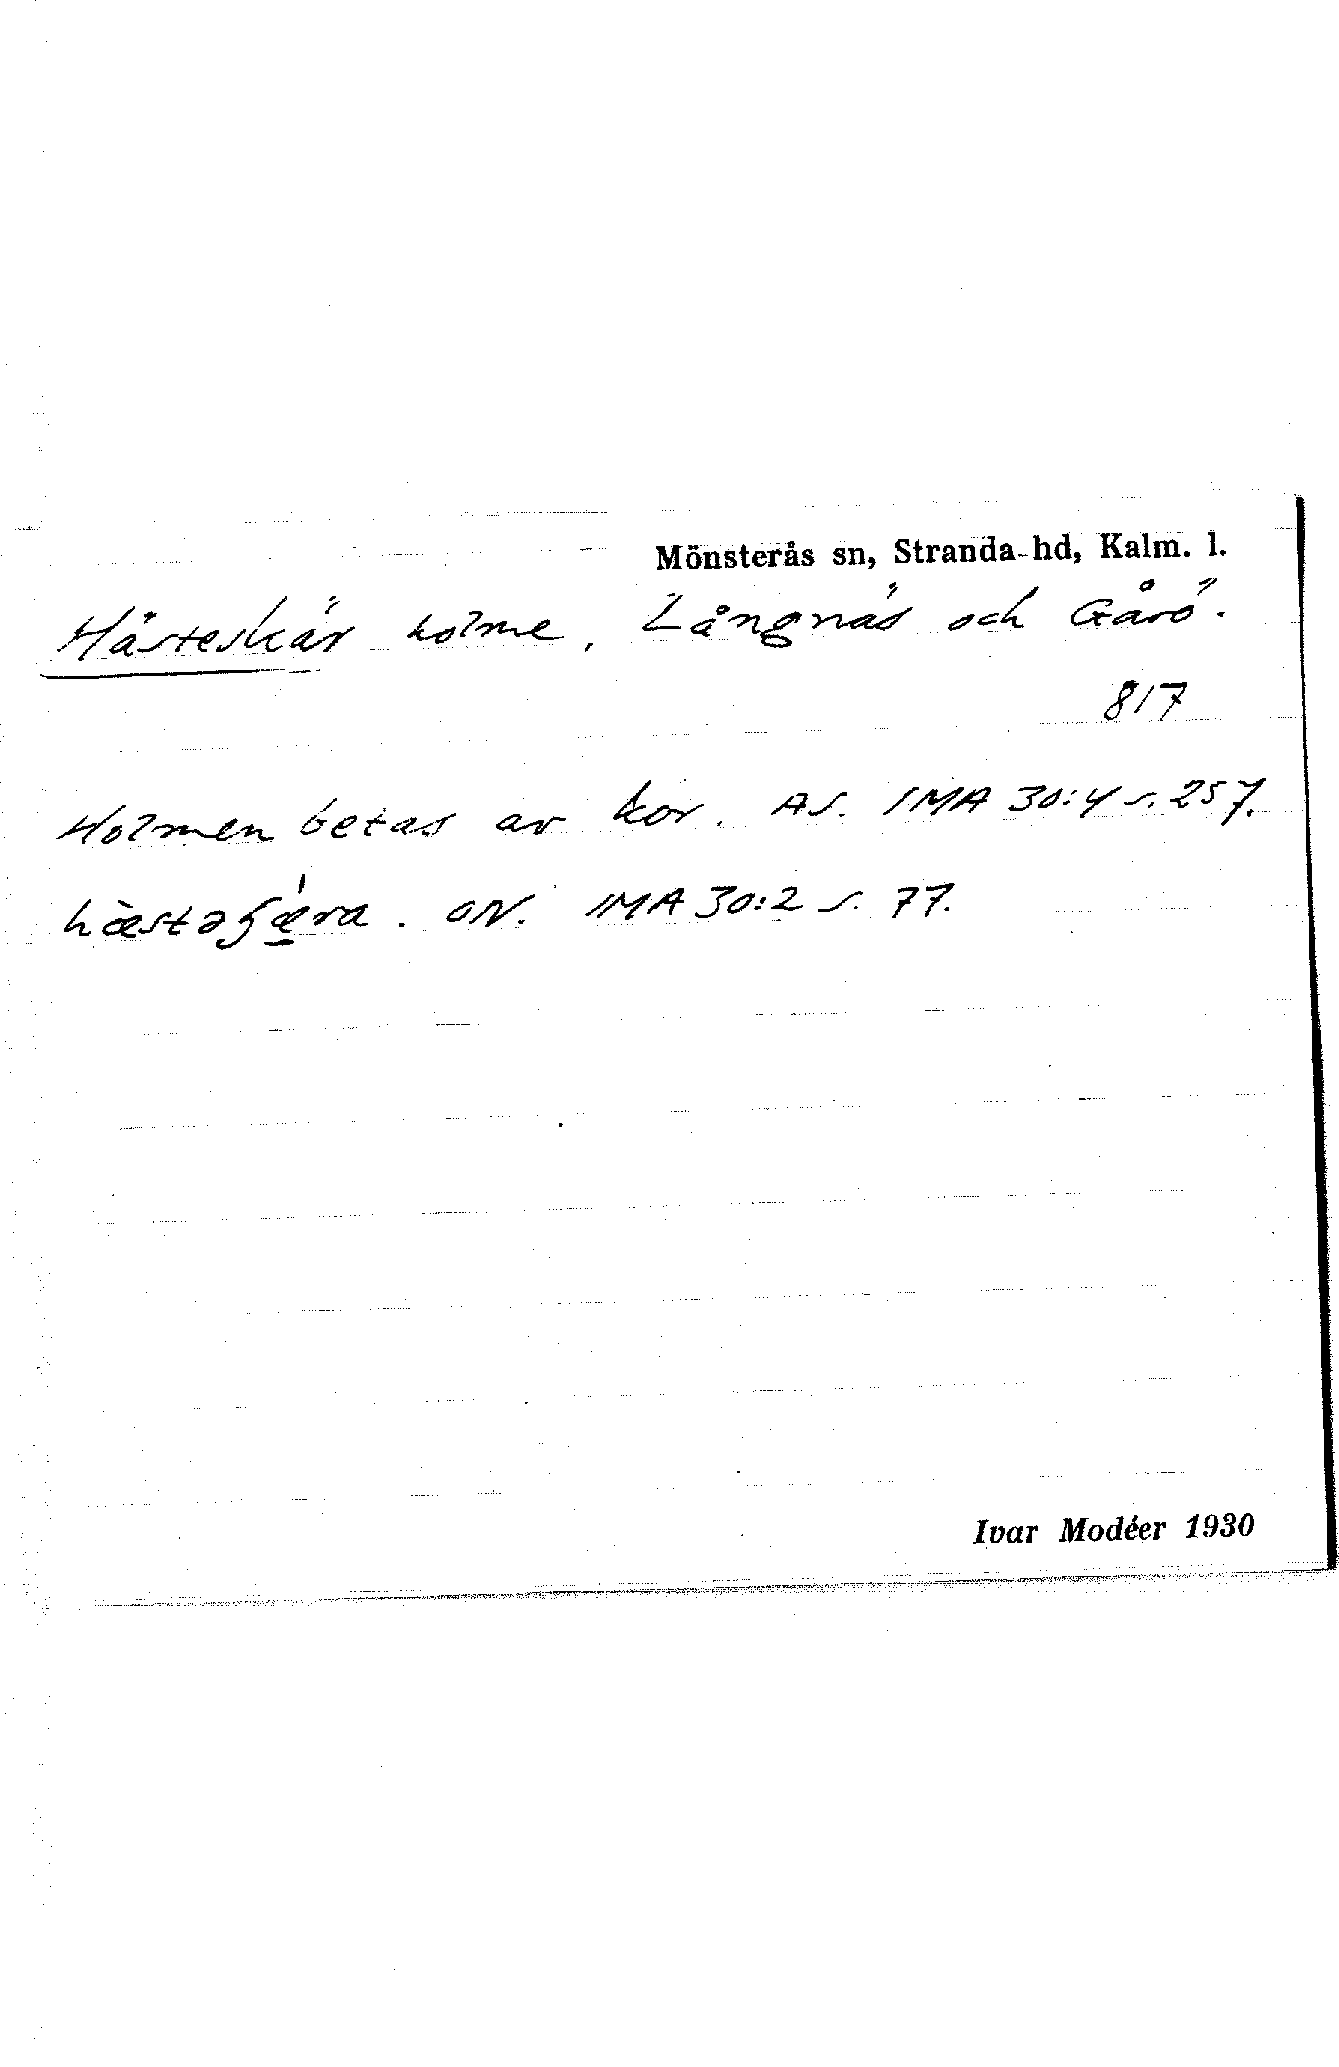 Mönsterås sn, Stranda hd, Kalm. l.
Hästeskär holme, Långnäs och Gårö.
817
Holmen betas av kor. AS. IMA 30:4 s. 257.
hæ̀stəʃǽ̱ra. ON. IMA 30:2 s. 77.
Ivar Modéer 1930